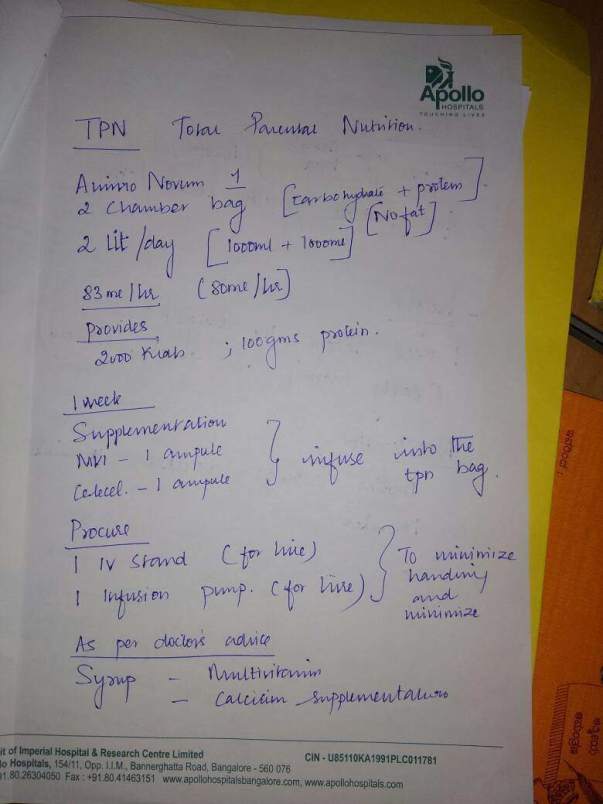 Apollo
HOSPITALS
TOUCHING LIVES
TPN Total Parental Nutrition.
Aminio Novum 1
2 chamber bag [carbohydrate + protein]
[No fat]
2 Lit/day [1000ml + 1000ml]
83 ml/hr (80ml/hr)
Provides
2000 Kcals ; 100gms protein.
1 week
Supplementation
MVI - 1 ampule
- 1 ampule
} infuse into the
tpn bag.
Procure
1 IV Stand (for hire)
1 Infusion pump. (for hire)
} To minimize
handling
and
minimize
As per doctor's advice
Syrup - Multivitamin
- Calcium supplementation
it of Imperial Hospital & Research Centre Limited
CIN - U85110KA1991PLC011781
lo Hospitals, 154/11, Opp. I.I.M., Bannerghatta Road, Bangalore - 560 076
91.80.26304050 Fax : +91.80.41463151 www.apollohospitalsbangalore.com, www.apollohospitals.com